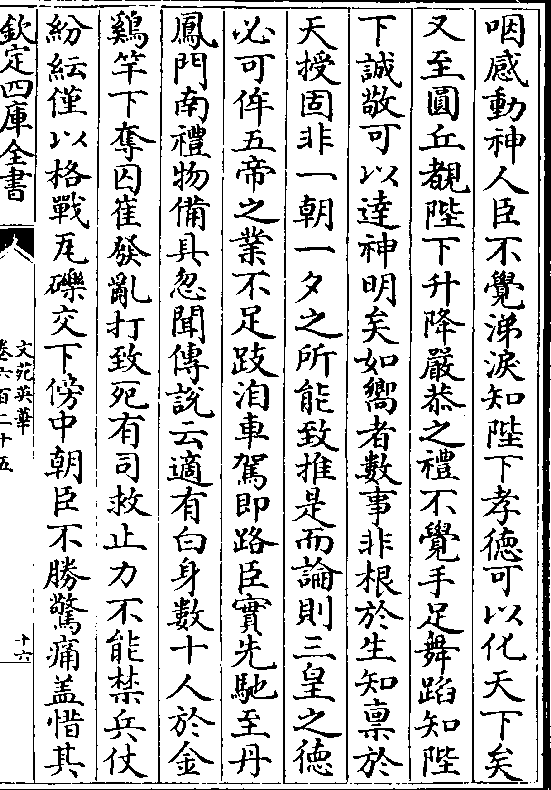 咽感動神人臣不覺涕淚知陛下孝德可以化天下矣
又至圓丘覩陛下升降嚴恭之禮不覺手足舞蹈知陛
下誠敬可以達神明矣如嚮者數事非根於生知禀於
天授固非一朝一夕之所能致推是而論則三皇之德
必可侔五帝之業不足跂洎車駕即路臣實先馳至丹
鳳門南禮物備具忽聞傳說云適有白身數十人於金
鷄竿下奪囚崔發亂打致死有司救止力不能禁兵仗
紛紜僅以格戰瓦礫交下傍中朝臣不勝驚痛盖惜其
欽定四庫全書
文苑英華
卷六百二十五
十六